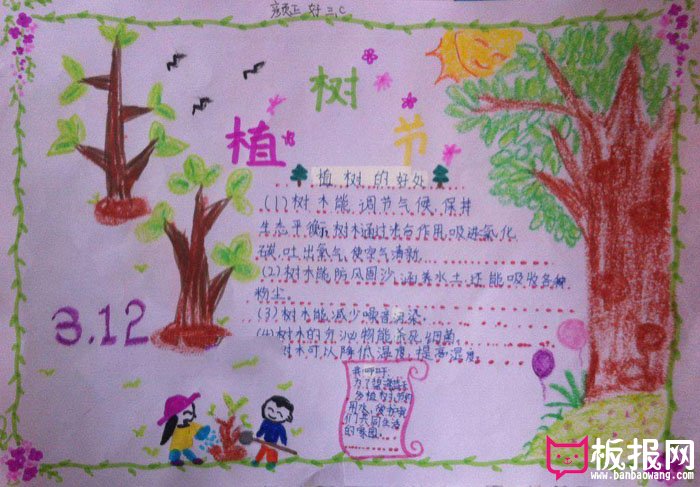 植树节
植树的好处
(1)树木能调节气候、保持
生态平衡,树木通过光合作用,吸进氧化
碳,吐出氧气,使空气清新.
(2)树木能防风固沙,涵养水土,还能吸收各种
粉尘。
(3)树木能减少噪音污染。
(4)树木的分泌物能杀死细菌。
树木可以降低湿度,提高湿度。
3.12
我呼吁:
为了
多植树,节约
用水,爱护我
们共同生活
的家园。
板报网
www.banbaowang.com